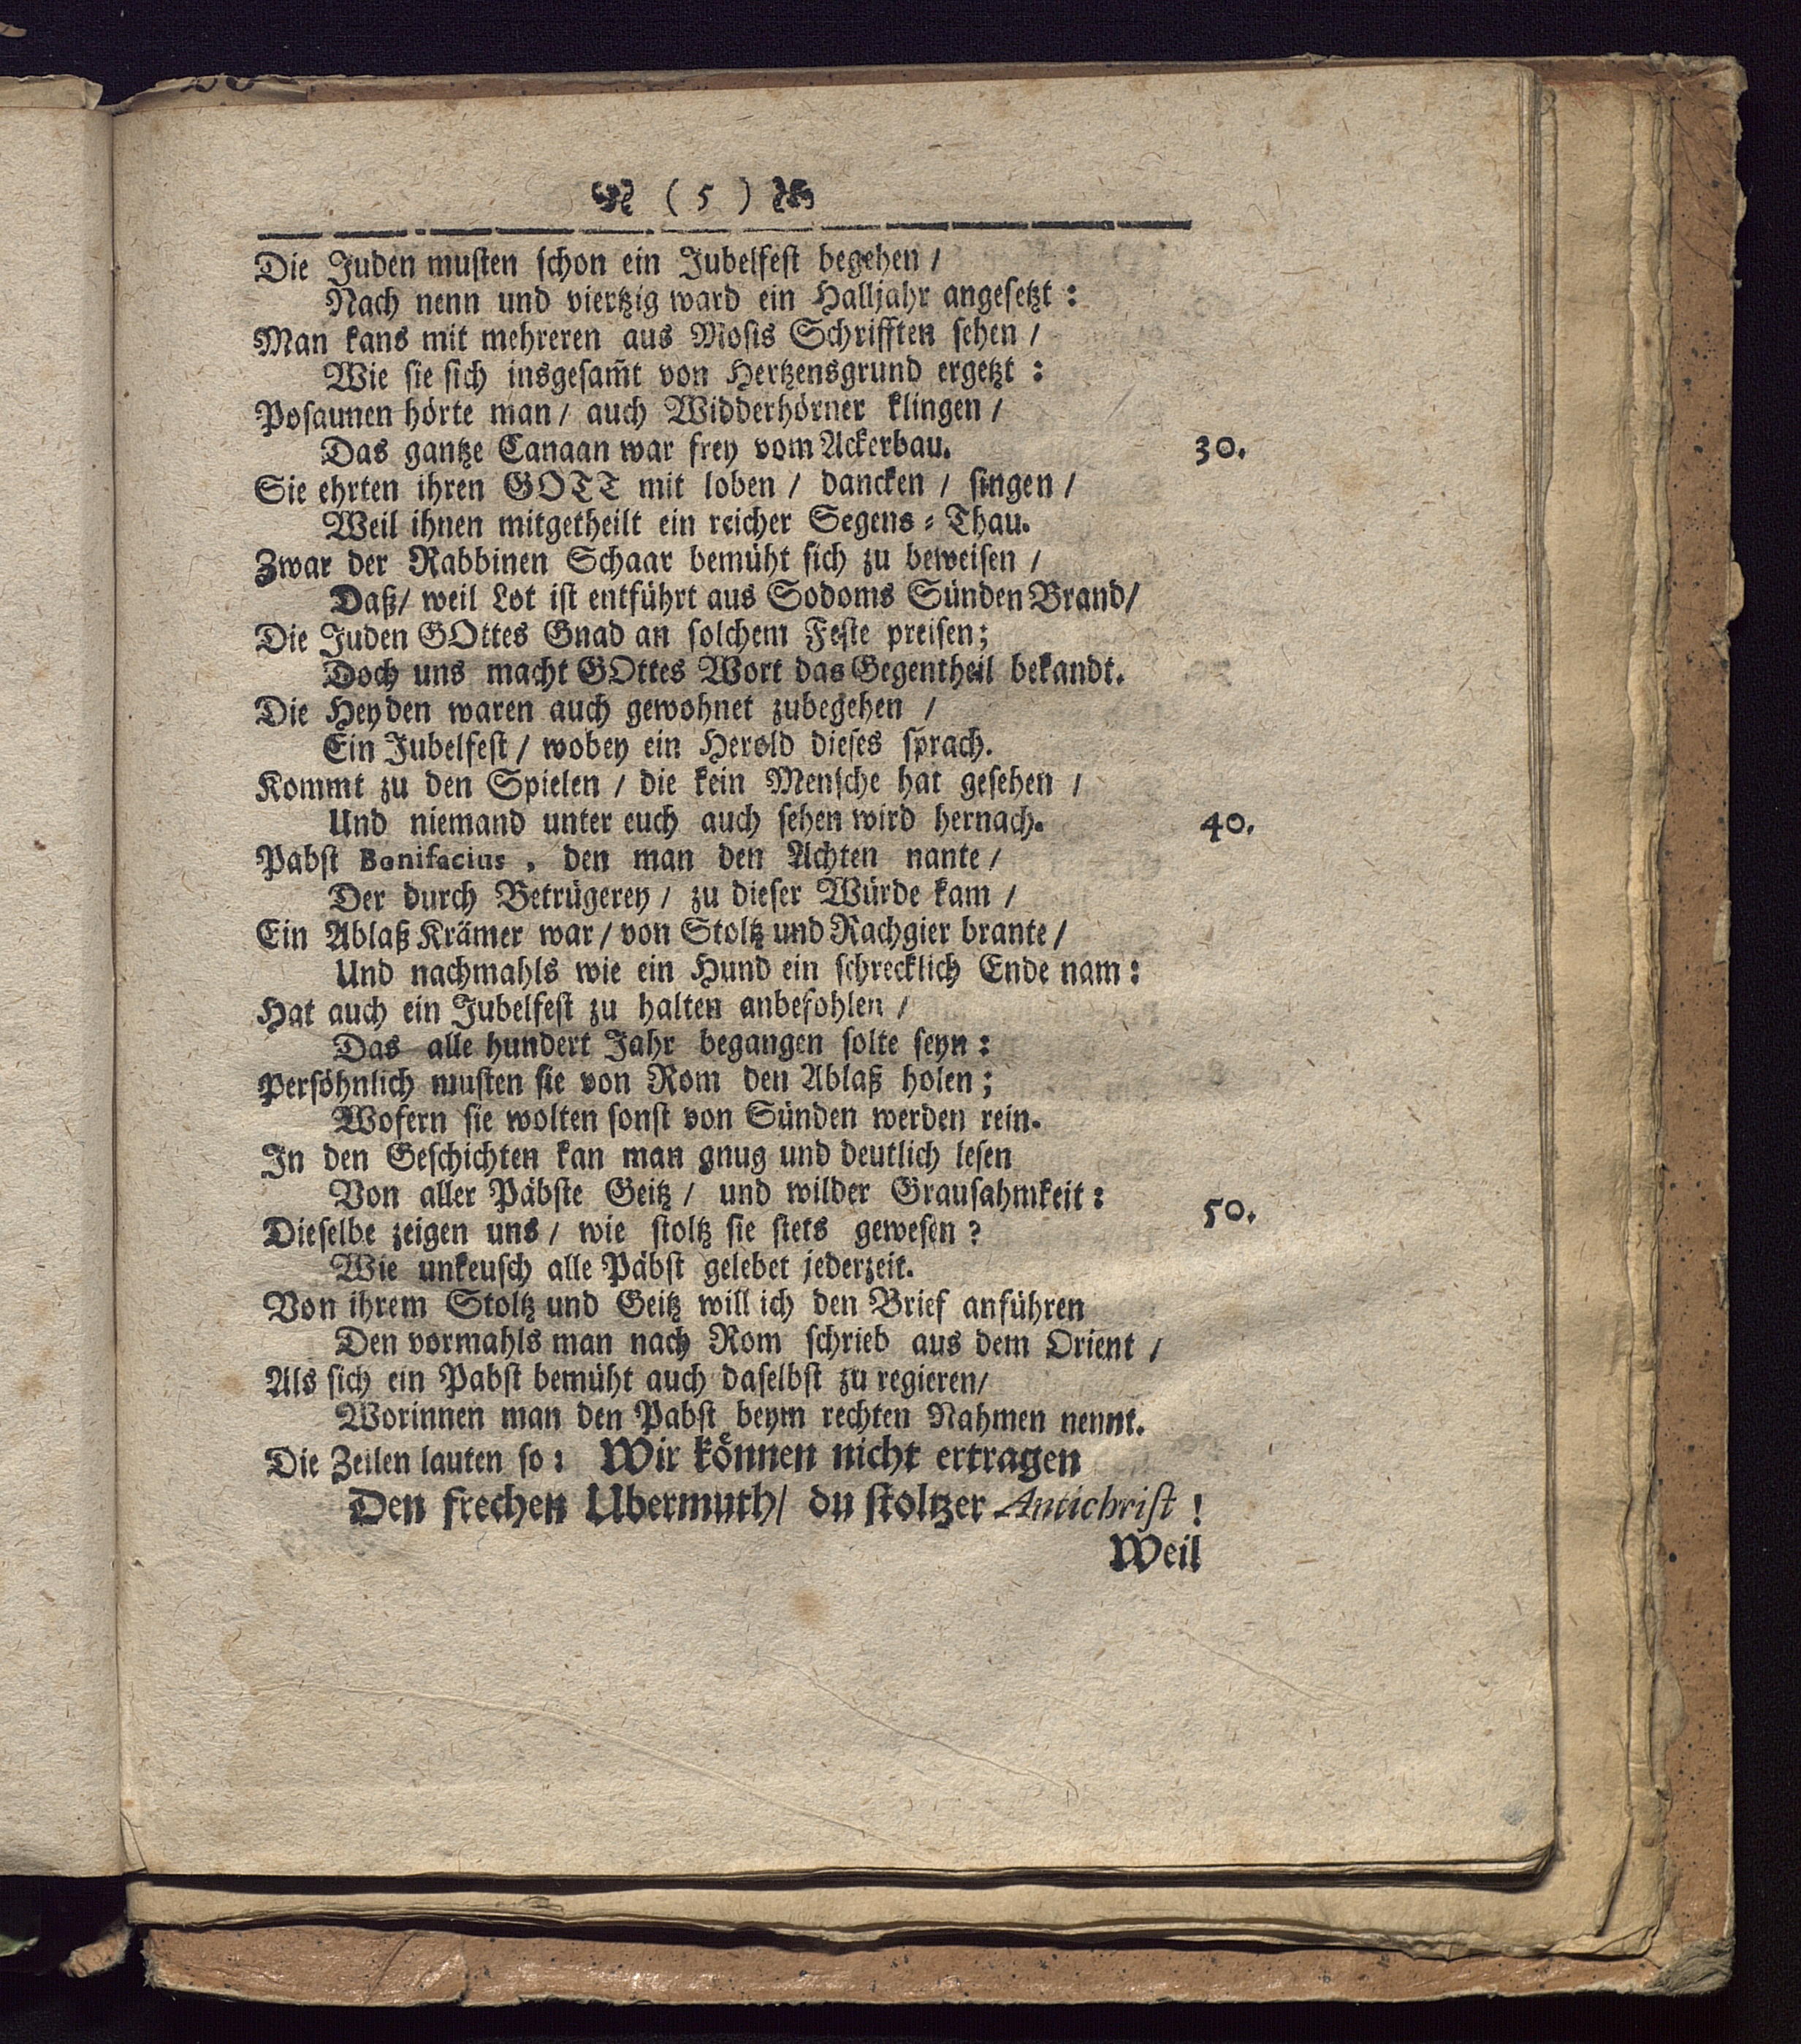 ( 5 )
Die Juden musten schon ein Jubelfest begehen /
Nach nenn und viertzig ward ein Halljahr angesetzt :
Man kans mit mehreren aus Mosis Schrifften sehen /
Wie sie sich insgesam̃t von Hertzensgrund ergetzt :
Posaunen hörte man / auch Widderhörner klingen /
Das gantze Canaan war frey vom Ackerbau. 30.
Sie ehrten ihren GOTT mit loben / dancken / singen /
Weil ihnen mitgetheilt ein reicher Segens = Thau.
Zwar der Rabbinen Schaar bemüht sich zu beweisen /
Daß / weil Lot ist entführt aus Sodoms Sünden Brand /
Die Juden GOttes Gnad an solchem Feste preisen ;
Doch uns macht GOttes Wort das Gegentheil bekandt.
Die Heyden waren auch gewohnet zubegehen /
Ein Jubelfest / wobey ein Herold dieses sprach.
Kommt zu den Spielen / die kein Mensche hat gesehen /
Und niemand unter euch auch sehen wird hernach. 40.
Pabst Bonifacius , den man den Achten nante /
Der durch Betrügerey / zu dieser Würde kam /
Ein Ablaß Krämer war / von Stoltz und Rachgier brante /
Und nachmahls wie ein Hund ein schrecklich Ende nam :
Hat auch ein Jubelfest zu halten anbefohlen /
Das alle hundert Jahr begangen solte seyn :
Persöhnlich musten sie von Rom den Ablaß holen ;
Wofern sie wolten sonst von Sünden werden rein.
In den Geschichten kan man gnug und deutlich lesen
Von aller Päbste Geitz / und wilder Grausahmkeit : 50.
Dieselbe zeigen uns / wie stoltz sie stets gewesen ?
Wie unkeusch alle Päbst gelebet jederzeit.
Von ihrem Stoltz und Geitz will ich den Brief anführen
Den vormahls man nach Rom schrieb aus dem Orient /
Als sich ein Pabst bemüht auch daselbst zu regieren /
Worinnen man den Pabst beym rechten Nahmen nennt.
Die Zeilen lauten so : Wir können nicht ertragen
Den frechen Ubermuth / du stoltzer Antichrist !
Weil